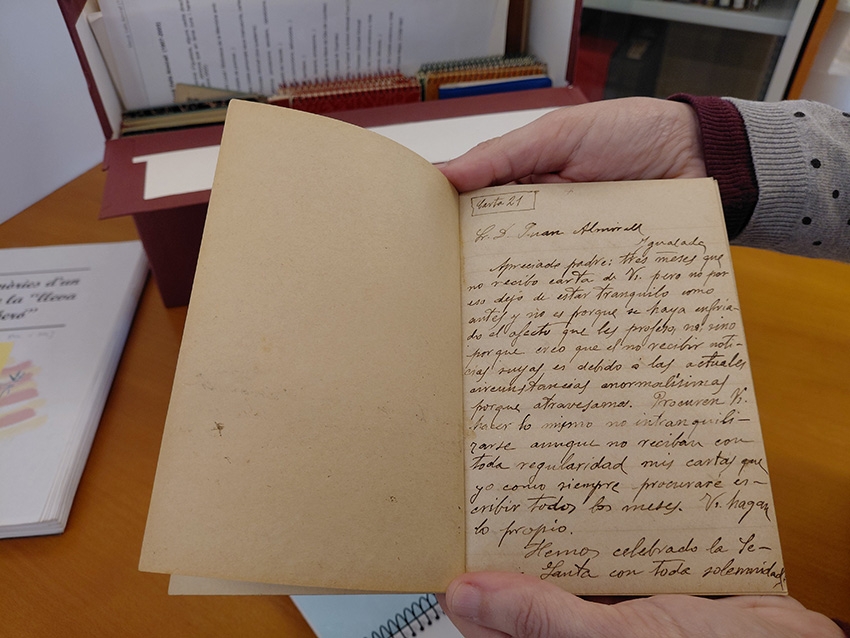 Carta 21
Sr. D. Juan Almirall
Igualada
Apreciado padre: tres meses que
no recibo carta de V. pero no por
eso dejo de estar tranquilo como
antes y no es porque se haya enfria-
do el afecto que les profeso, no, sino
porque creo que el no recibir noti-
cias suyas es debido á las actuales
circunstancias anormalísimas
porque atravesamos. Procuren V.
hacer lo mismo no intranquili-
zarse aunque no reciban con
toda regularidad mis cartas que
yo como siempre procurare es-
cribir todos los meses. V. hagan
lo propio.
Hemos celebrado la Se-
Santa con toda solemnidad,
mòries d'un
la "lleva
beró"